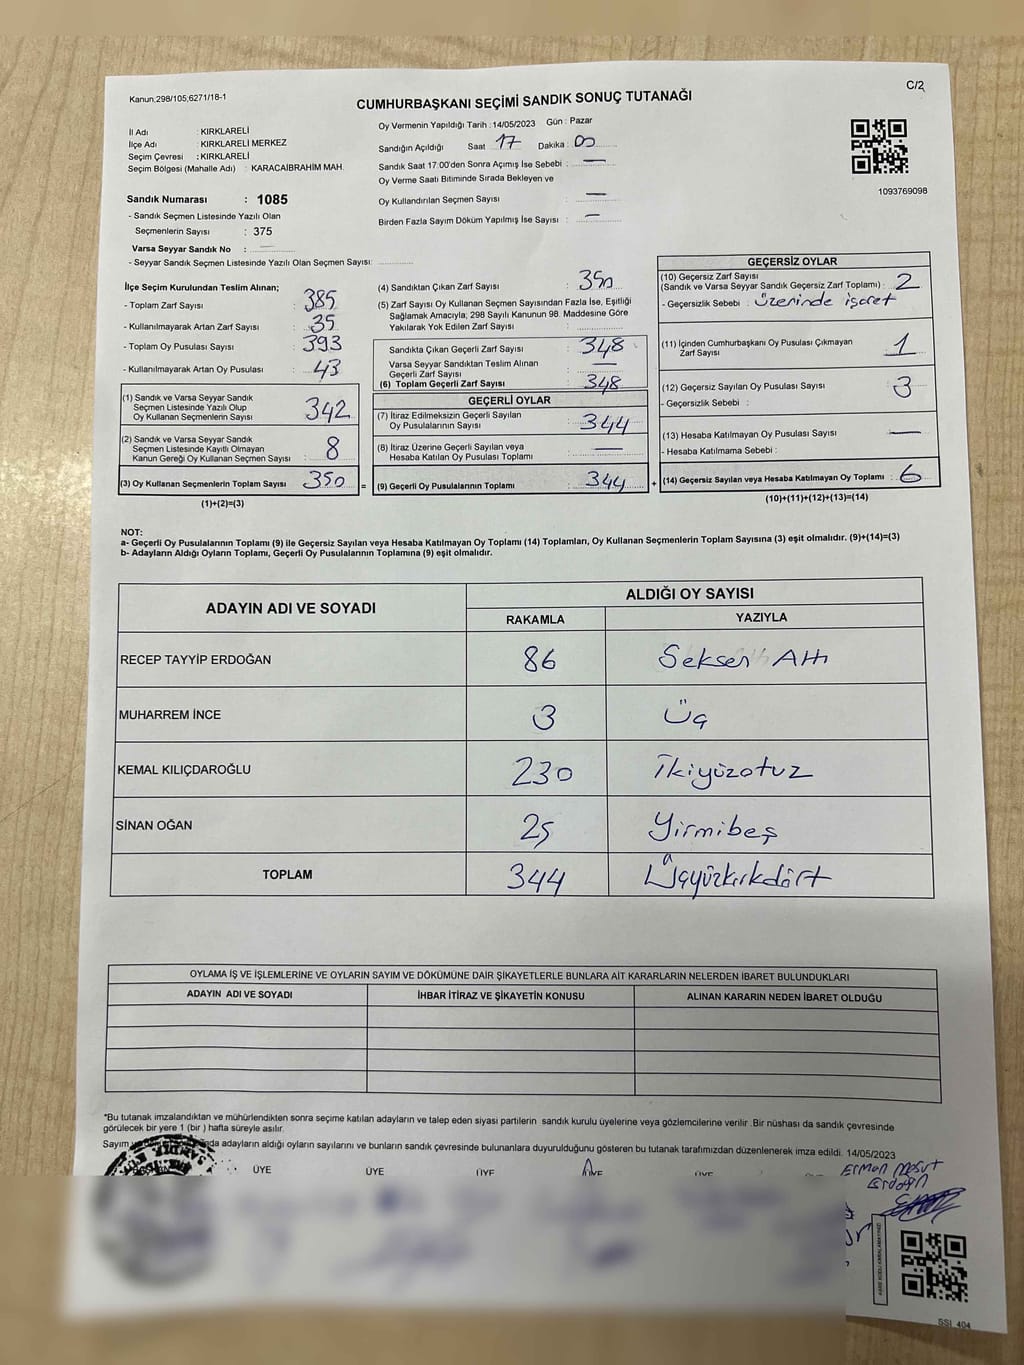 Kanun;298/105;6271/18-1
C/2
CUMHURBAŞKANI SEÇİMİ SANDIK SONUÇ TUTANAĞI
İl Adı : KIRKLARELİ
İlçe Adı : KIRKLARELİ MERKEZ
Seçim Çevresi : KIRKLARELİ
Seçim Bölgesi (Mahalle Adı) : KARACAİBRAHİM MAH.
Sandık Numarası : 1085
- Sandık Seçmen Listesinde Yazılı Olan
Seçmenlerin Sayısı : 375
Varsa Seyyar Sandık No : —
- Seyyar Sandık Seçmen Listesinde Yazılı Olan Seçmen Sayısı:
Oy Vermenin Yapıldığı Tarih : 14/05/2023 Gün : Pazar
Sandığın Açıldığı Saat 17 Dakika : 00
Sandık Saat 17:00'den Sonra Açımış İse Sebebi : —
Oy Verme Saati Bitiminde Sırada Bekleyen ve
Oy Kullandırılan Seçmen Sayısı : —
Birden Fazla Sayım Döküm Yapılmış İse Sayısı : —
1093769098
İlçe Seçim Kurulundan Teslim Alınan;
- Toplam Zarf Sayısı : 385
- Kullanılmayarak Artan Zarf Sayısı : 35
- Toplam Oy Pusulası Sayısı : 393
- Kullanılmayarak Artan Oy Pusulası : 43
(1) Sandık ve Varsa Seyyar Sandık
Seçmen Listesinde Yazılı Olup
Oy Kullanan Seçmenlerin Sayısı : 342
(2) Sandık ve Varsa Seyyar Sandık
Seçmen Listesinde Kayıtlı Olmayan
Kanun Gereği Oy Kullanan Seçmen Sayısı : 8
(3) Oy Kullanan Seçmenlerin Toplam Sayısı : 350
(1)+(2)=(3)
(4) Sandıktan Çıkan Zarf Sayısı : 350
(5) Zarf Sayısı Oy Kullanan Seçmen Sayısından Fazla İse, Eşitliği
Sağlamak Amacıyla; 298 Sayılı Kanunun 98. Maddesine Göre
Yakılarak Yok Edilen Zarf Sayısı :
Sandıkta Çıkan Geçerli Zarf Sayısı : 348
Varsa Seyyar Sandıktan Teslim Alınan
Geçerli Zarf Sayısı : —
(6) Toplam Geçerli Zarf Sayısı : 348
GEÇERLİ OYLAR
(7) İtiraz Edilmeksizin Geçerli Sayılan
Oy Pusulalarının Sayısı : 344
(8) İtiraz Üzerine Geçerli Sayılan veya
Hesaba Katılan Oy Pusulası Toplamı : —
= (9) Geçerli Oy Pusulalarının Toplamı : 344
GEÇERSİZ OYLAR
(10) Geçersiz Zarf Sayısı
(Sandık ve Varsa Seyyar Sandık Geçersiz Zarf Toplamı) : 2
- Geçersizlik Sebebi : üzerinde işaret
(11) İçinden Cumhurbaşkanı Oy Pusulası Çıkmayan
Zarf Sayısı : 1
(12) Geçersiz Sayılan Oy Pusulası Sayısı : 3
- Geçersizlik Sebebi :
(13) Hesaba Katılmayan Oy Pusulası Sayısı : —
- Hesaba Katılmama Sebebi :
+ (14) Geçersiz Sayılan veya Hesaba Katılmayan Oy Toplamı : 6
(10)+(11)+(12)+(13)=(14)
NOT:
a- Geçerli Oy Pusulalarının Toplamı (9) ile Geçersiz Sayılan veya Hesaba Katılmayan Oy Toplamı (14) Toplamları, Oy Kullanan Seçmenlerin Toplam Sayısına (3) eşit olmalıdır. (9)+(14)=(3)
b- Adayların Aldığı Oyların Toplamı, Geçerli Oy Pusulalarının Toplamına (9) eşit olmalıdır.
ADAYIN ADI VE SOYADI
ALDIĞI OY SAYISI
RAKAMLA YAZIYLA
RECEP TAYYİP ERDOĞAN 86 Seksen Altı
MUHARREM İNCE 3 Üç
KEMAL KILIÇDAROĞLU 230 İkiyüzotuz
SİNAN OĞAN 25 Yirmibeş
TOPLAM 344 Üçyüzkırkdört
OYLAMA İŞ VE İŞLEMLERİNE VE OYLARIN SAYIM VE DÖKÜMÜNE DAİR ŞİKAYETLERLE BUNLARA AİT KARARLARIN NELERDEN İBARET BULUNDUKLARI
ADAYIN ADI VE SOYADI İHBAR İTİRAZ VE ŞİKAYETİN KONUSU ALINAN KARARIN NEDEN İBARET OLDUĞU
*Bu tutanak imzalandıktan ve mühürlendikten sonra seçime katılan adayların ve talep eden siyasi partilerin sandık kurulu üyelerine veya gözlemcilerine verilir .Bir nüshası da sandık çevresinde
görülecek bir yere 1 (bir ) hafta süreyle asılır.
Sayım adayların aldığı oyların sayılarını ve bunların sandık çevresinde bulunanlara duyurulduğunu gösteren bu tutanak tarafımızdan düzenlenerek imza edildi. 14/05/2023
ÜYE ÜYE ÜYE ÜYE ÜYE
Erman Mesut
Erdoğan
SSI_404